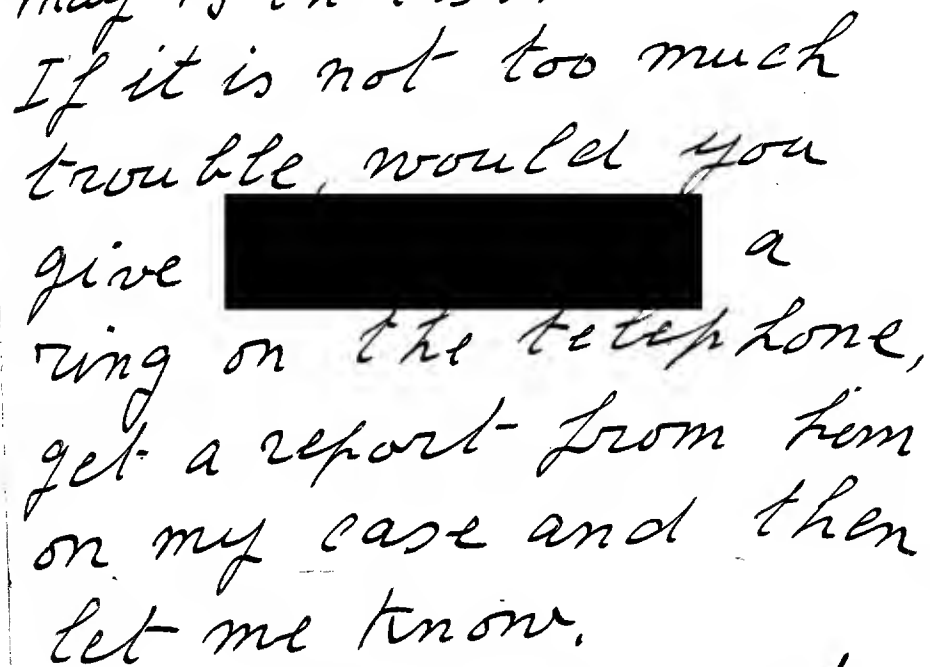 If it is not too much
trouble, would you
give a
ring on the telephone,
get a report from him
on my case and then
let me know.